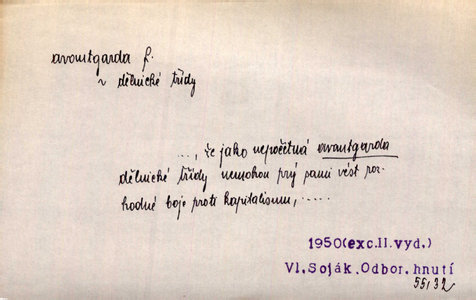 avantgarda f.
~ dělnické třídy
..., že jako nepočetná avantgarda
dělnické třídy nemohou prý sami vést roz-
hodné boje proti kapitalismu, .....
1950(exc.II.vyd.)
Vl.Soják.Odbor.hnutí
55/32